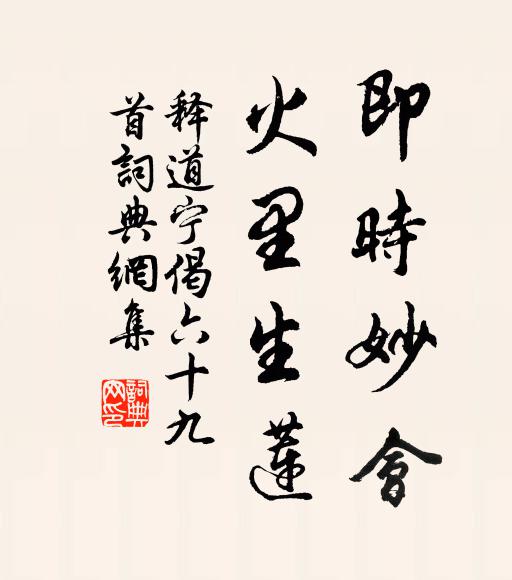 即時妙會
火里生蓮
释道宁偈六十九
首詞典網集
詞典网印